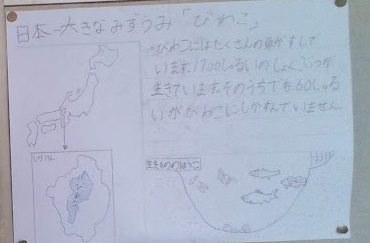 日本一大きなみずうみ「びわこ」
・びわこにはたくさんの魚がすんで
います。1700しゅるいのしょくぶつが
生きています。そのうちでも60しゅる
いがびわこにしかすんでいません。
しがけん
生きもの